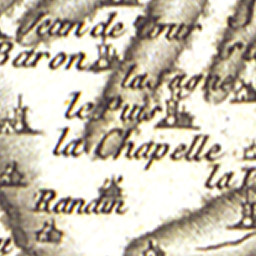 Jean de Tour
Baron
la sagne
le Puis
la Chapelle
la
Randin